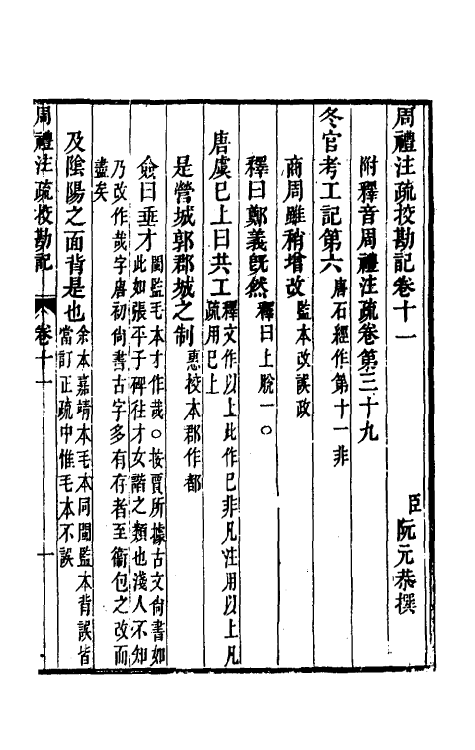 周禮注疏挍勘記卷十一
臣阮元恭撰
附釋音周禮注疏卷第三十九
冬官考工記第六唐石經作第十一非
商周雖稍增改監本改誤政
釋曰鄭義旣然釋曰上脫一○
唐虞巳上曰共工釋文作以上此作巳非凡注用以上凡
疏用巳上
是營城郭郡城之制惠挍本郡作都
僉曰垂才閩監毛本才作哉○按賈所據古文尙書如
此如張平子碑往才女諧之類也淺人不知
乃改作哉字唐初尙書古字多有存者至衞包之改而
盡矣
及隂陽之面背是也余本嘉靖本毛本同閩監本背誤皆
當訂正疏中惟毛本不誤
周禮注疏挍勘記
卷十一
一